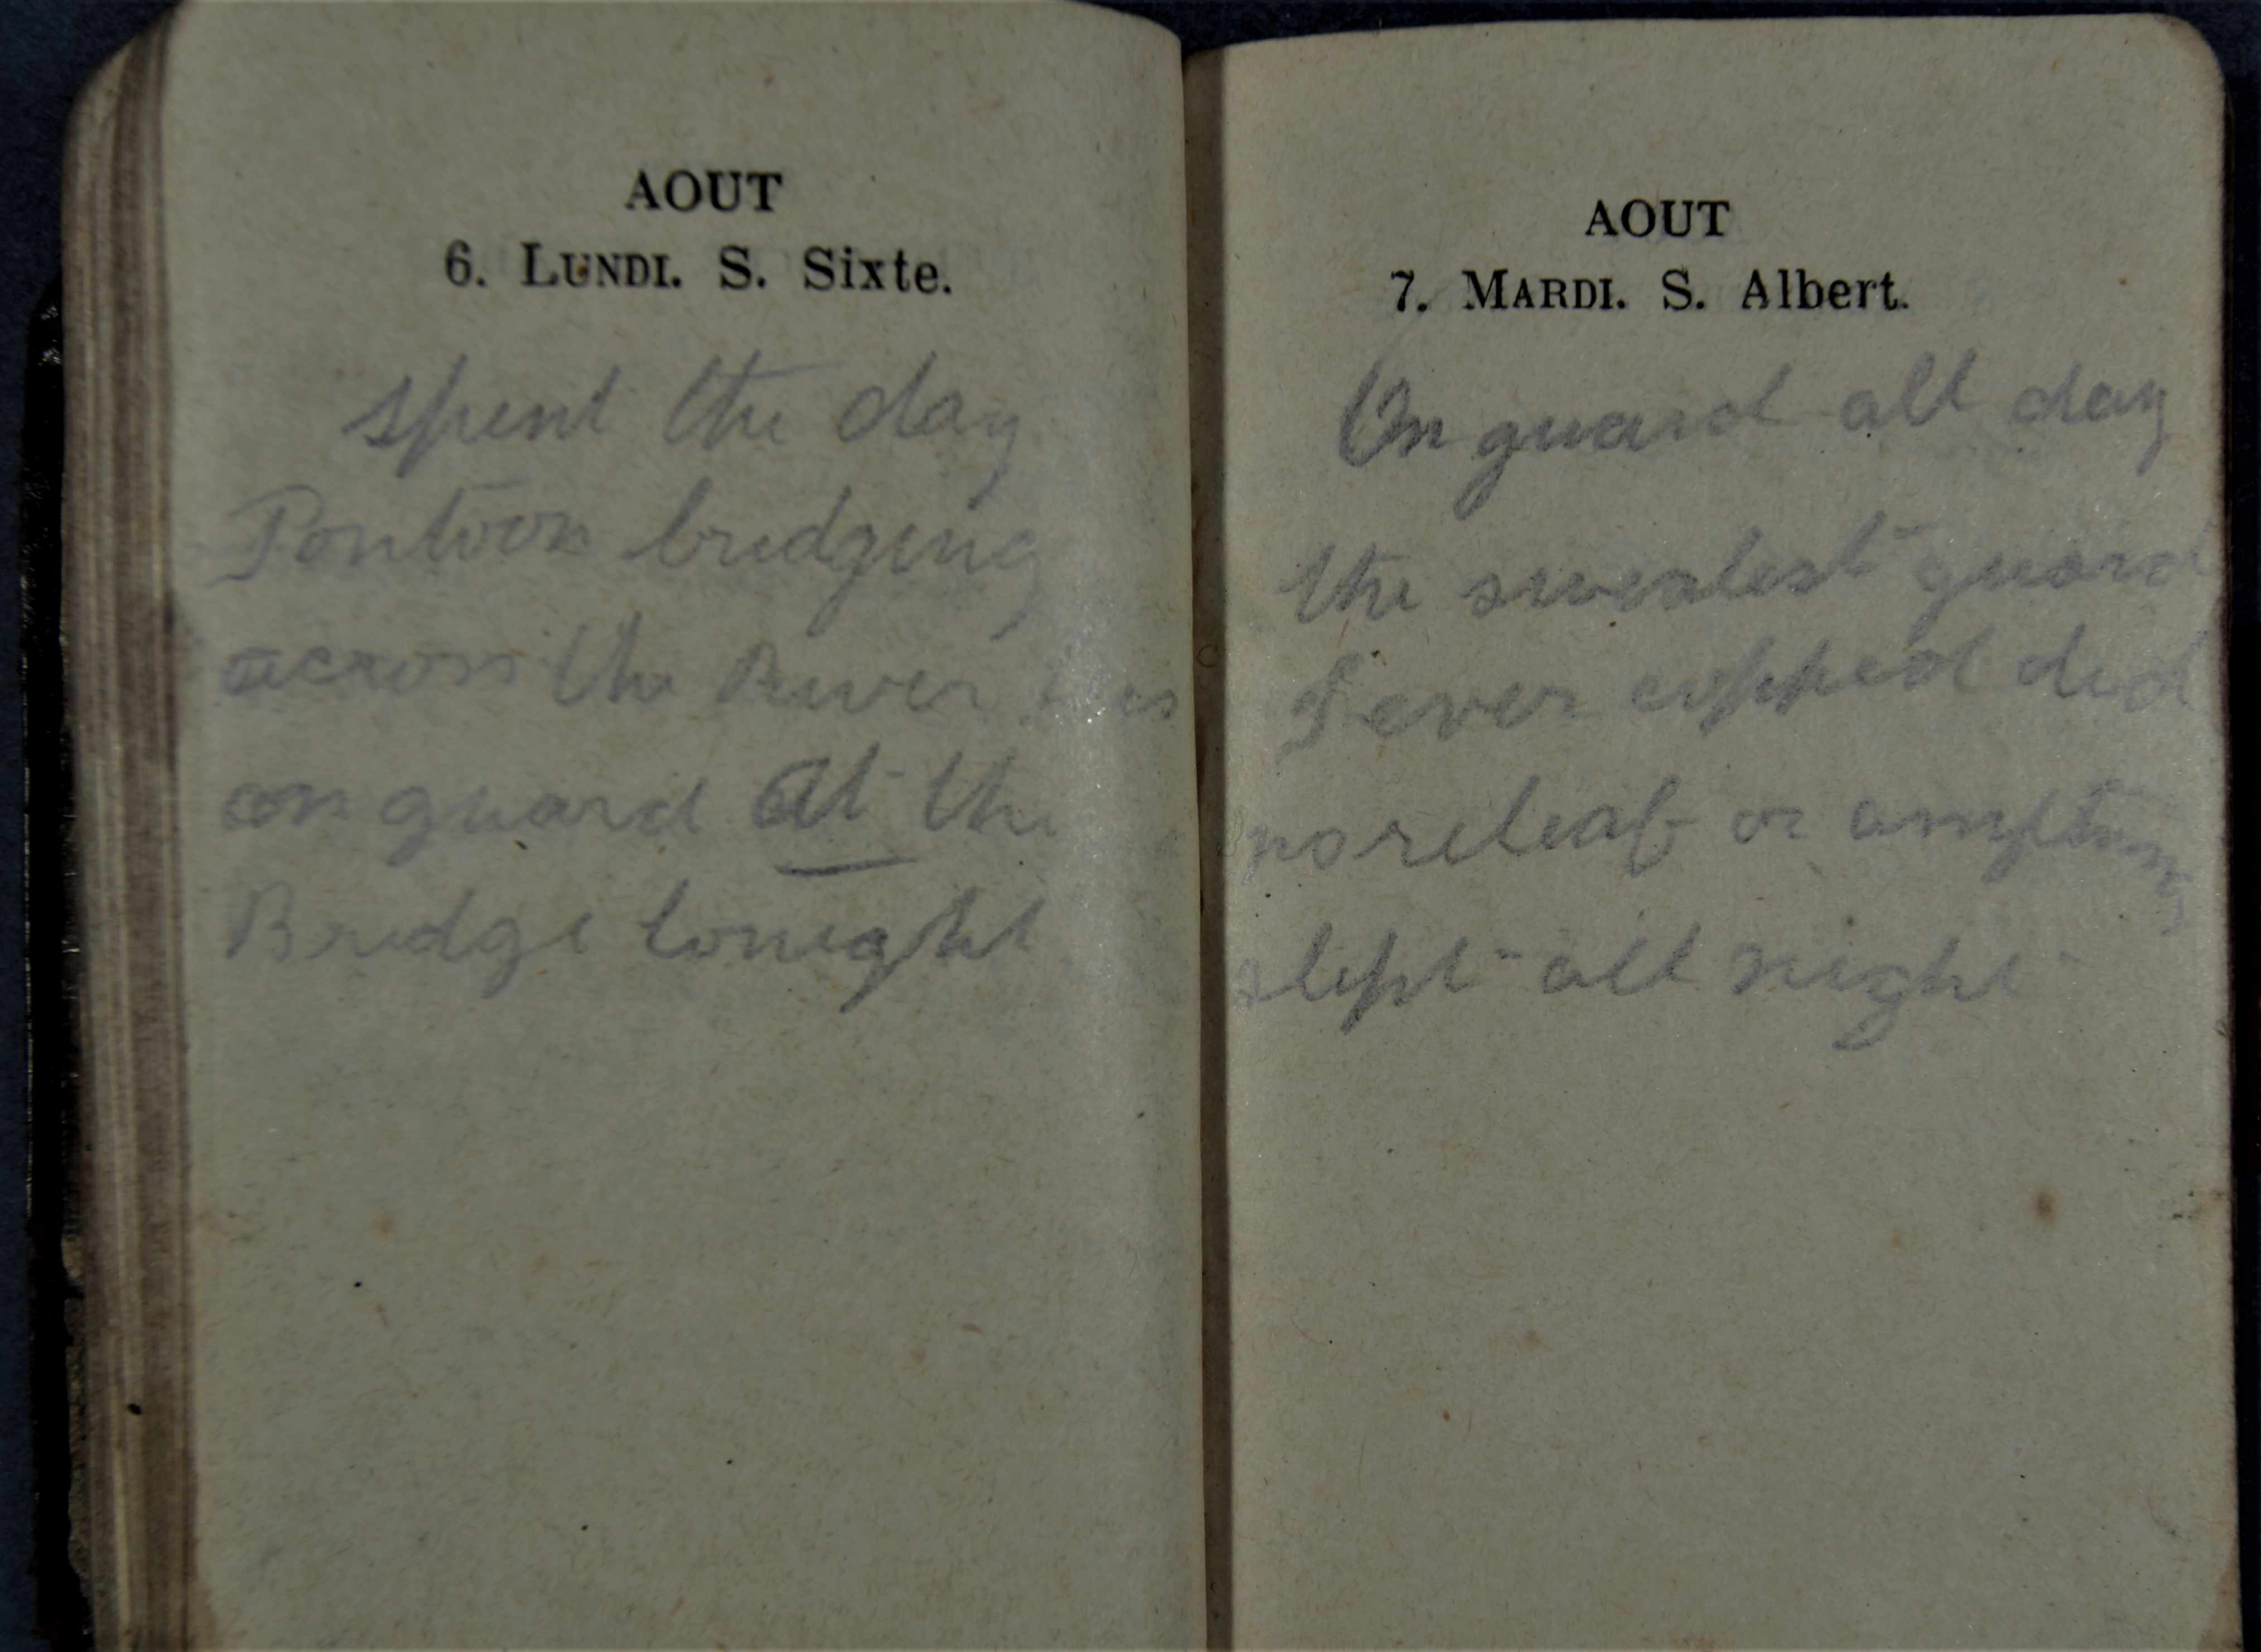 AOUT
6. LUNDI. S. Sixte.
spent the day
Pontoon bridging
across the River
on guard at the
Bridge tonight
AOUT
7. MARDI. S. Albert.
On guard all day
the sweatest guard
I ever copped did
no releaf or anything
slept all night